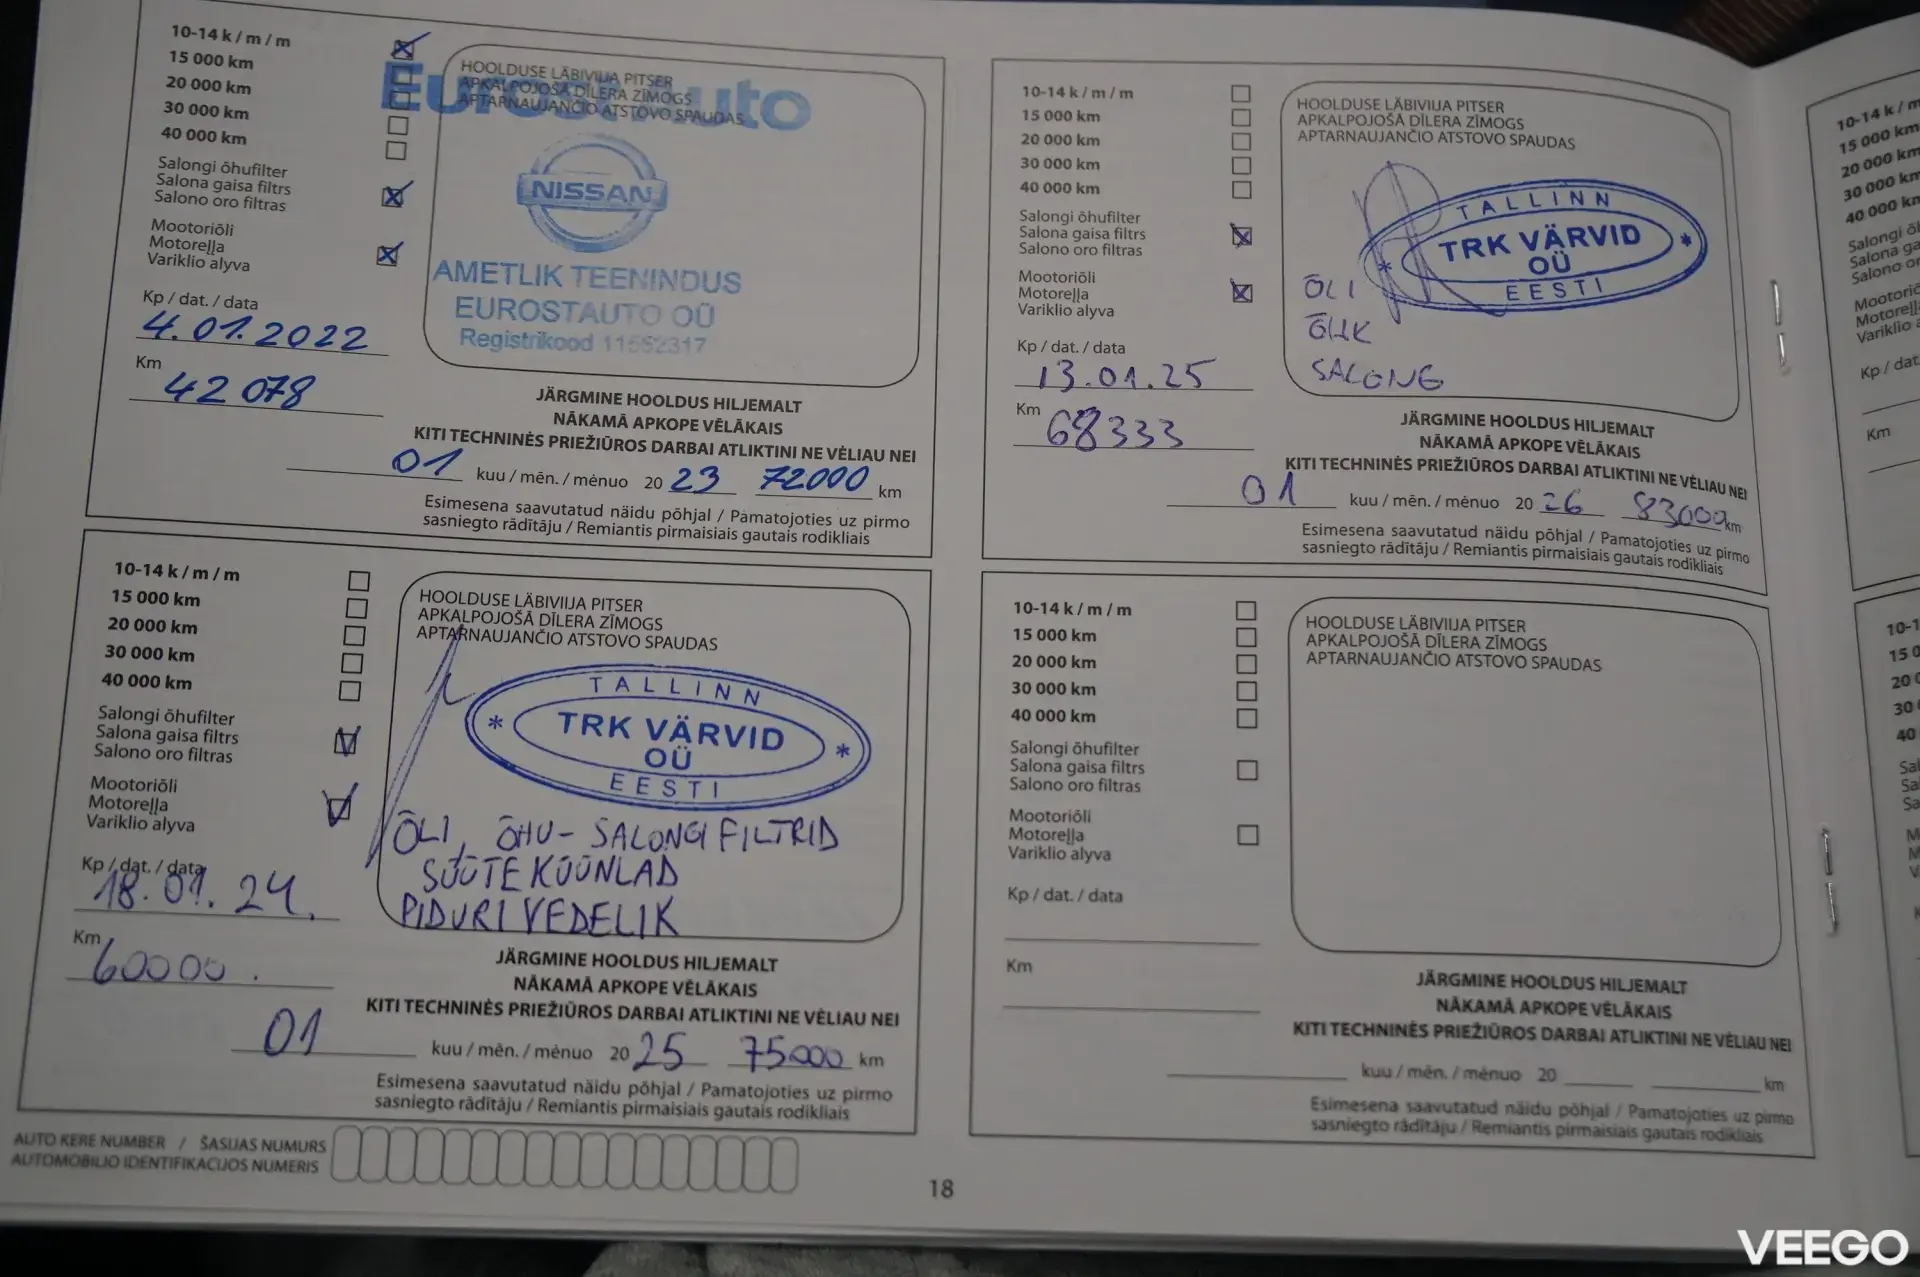 10-14 k / m / m
15 000 km
20 000 km
30 000 km
40 000 km
Salongi õhufilter
Salona gaisa filtrs
Salono oro filtras
Mootoriõli
Motoreļļa
Variklio alyva
Kp / dat. / data
4.01.2022
Km
42 078
HOOLDUSE LÄBIVIIJA PITSER
APKALPOJOŠĀ DĪLERA ZĪMOGS
APTARNAUJANČIO ATSTOVO SPAUDAS
Eurostauto
NISSAN
AMETLIK TEENINDUS
EUROSTAUTO OÜ
Registrikood 11552317
JÄRGMINE HOOLDUS HILJEMALT
NĀKAMĀ APKOPE VĒLĀKAIS
KITI TECHNINĖS PRIEŽIŪROS DARBAI ATLIKTINI NE VĖLIAU NEI
01 kuu / mēn. / mėnuo 20 23 72000 km
Esimesena saavutatud näidu põhjal / Pamatojoties uz pirmo
sasniegto rādītāju / Remiantis pirmaisiais gautais rodikliais
10-14 k / m / m
15 000 km
20 000 km
30 000 km
40 000 km
Salongi õhufilter
Salona gaisa filtrs
Salono oro filtras
Mootoriõli
Motoreļļa
Variklio alyva
Kp / dat. / data
18.01.24.
Km
60000.
HOOLDUSE LÄBIVIIJA PITSER
APKALPOJOŠĀ DĪLERA ZĪMOGS
APTARNAUJANČIO ATSTOVO SPAUDAS
TALLINN
TRK VÄRVID
OÜ
EESTI
ÕLI, ÕHU- SALONGI FILTRID
SÜÜTE KÜÜNLAD
PIDURI VEDELIK
JÄRGMINE HOOLDUS HILJEMALT
NĀKAMĀ APKOPE VĒLĀKAIS
KITI TECHNINĖS PRIEŽIŪROS DARBAI ATLIKTINI NE VĖLIAU NEI
01 kuu / mēn. / mėnuo 20 25 75000 km
Esimesena saavutatud näidu põhjal / Pamatojoties uz pirmo
sasniegto rādītāju / Remiantis pirmaisiais gautais rodikliais
AUTO KERE NUMBER / ŠASIJAS NUMURS
AUTOMOBILIO IDENTIFIKACIJOS NUMERIS
18
10-14 k / m / m
15 000 km
20 000 km
30 000 km
40 000 km
Salongi õhufilter
Salona gaisa filtrs
Salono oro filtras
Mootoriõli
Motoreļļa
Variklio alyva
Kp / dat. / data
13.01.25
Km
68333
HOOLDUSE LÄBIVIIJA PITSER
APKALPOJOŠĀ DĪLERA ZĪMOGS
APTARNAUJANČIO ATSTOVO SPAUDAS
TALLINN
TRK VÄRVID
OÜ
EESTI
ÕLI
JÄRGMINE HOOLDUS HILJEMALT
NĀKAMĀ APKOPE VĒLĀKAIS
KITI TECHNINĖS PRIEŽIŪROS DARBAI ATLIKTINI NE VĖLIAU NEI
01 kuu / mēn. / mėnuo 20 26 83000 km
Esimesena saavutatud näidu põhjal / Pamatojoties uz pirmo
sasniegto rādītāju / Remiantis pirmaisiais gautais rodikliais
10-14 k / m / m
15 000 km
20 000 km
30 000 km
40 000 km
Salongi õhufilter
Salona gaisa filtrs
Salono oro filtras
Mootoriõli
Motoreļļa
Variklio alyva
Kp / dat. / data
Km
HOOLDUSE LÄBIVIIJA PITSER
APKALPOJOŠĀ DĪLERA ZĪMOGS
APTARNAUJANČIO ATSTOVO SPAUDAS
JÄRGMINE HOOLDUS HILJEMALT
NĀKAMĀ APKOPE VĒLĀKAIS
KITI TECHNINĖS PRIEŽIŪROS DARBAI ATLIKTINI NE VĖLIAU NEI
kuu / mēn. / mėnuo 20 km
Esimesena saavutatud näidu põhjal / Pamatojoties uz pirmo
sasniegto rādītāju / Remiantis pirmaisiais gautais rodikliais
10-14 k / m
15 000 km
20 000 km
30 000 km
40 000 km
Kp / dat.
Km
VEEGO